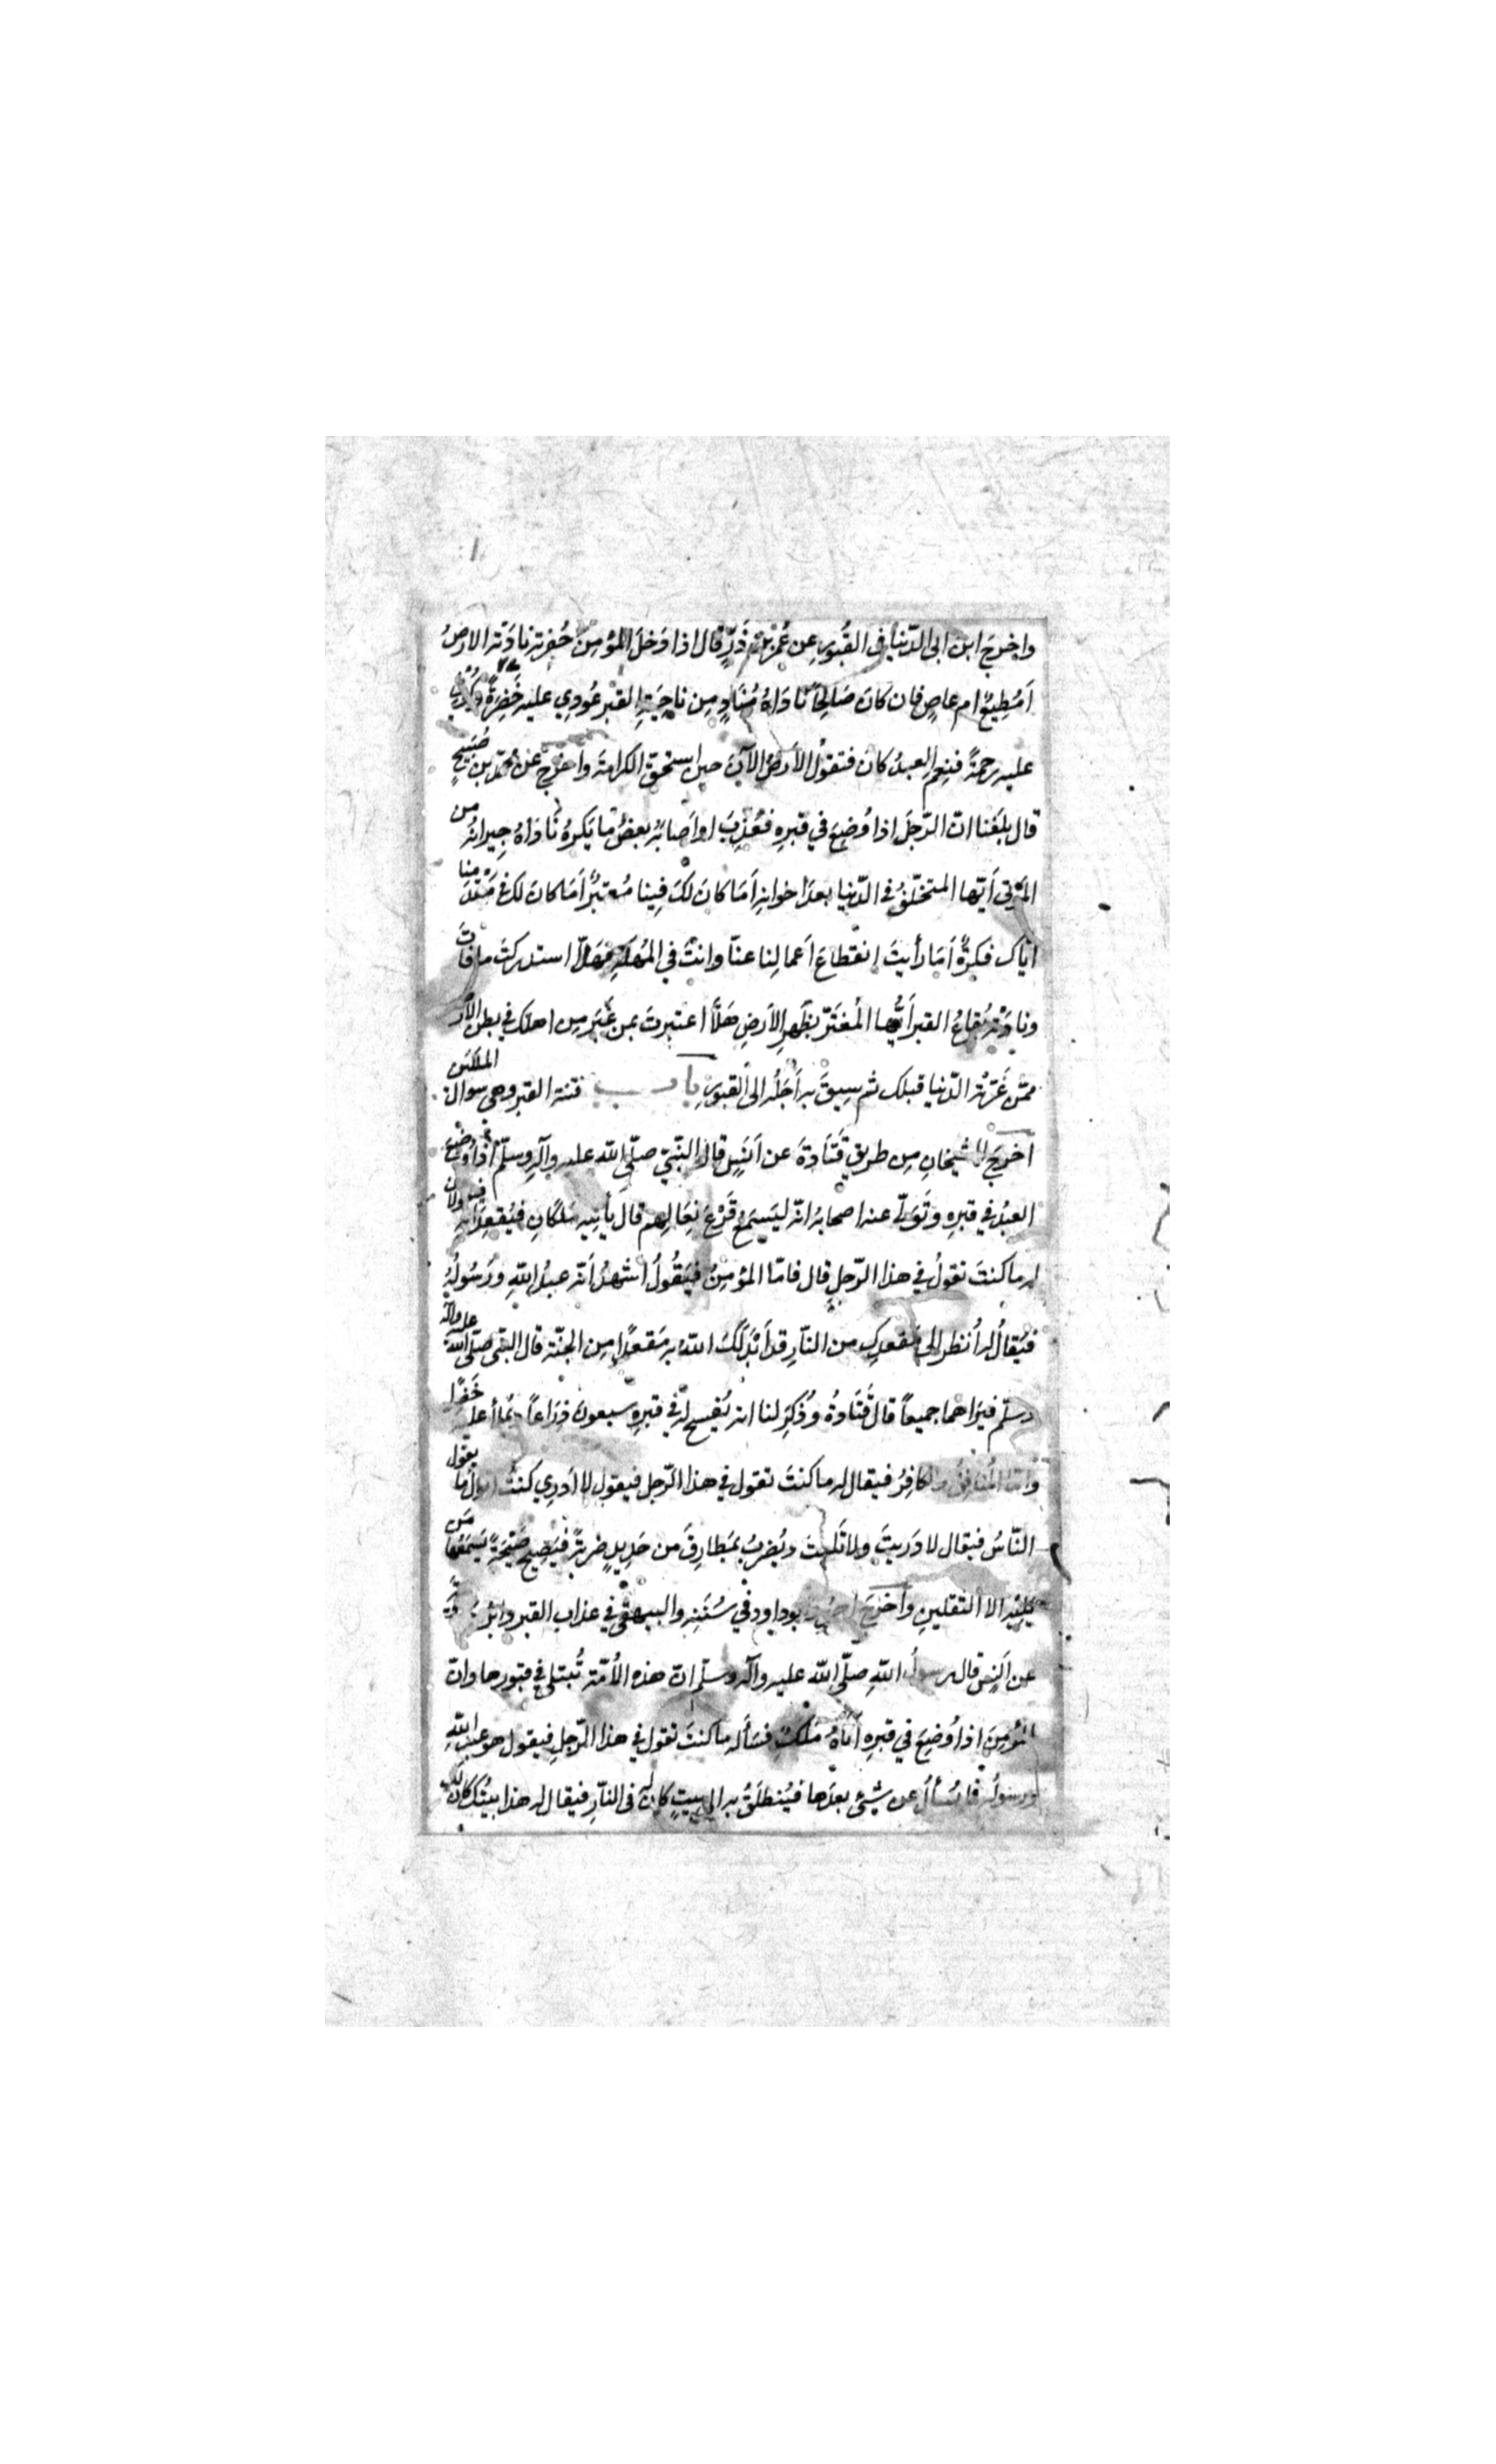 واخرج ابن ابى الدّنيا فى القُبورِ عن عُمَرَ بن ذَرٍّ قال اذا دَخلَ المؤمِنُ حُفرته نادَتْه الارضُ
اَمُطِيعٌ ام عاصٍ فان كانَ صَالِحًا نَادَاهُ مُنَادٍ مِن ناحِيَةِ القبر عُودِي عليه خَضِرَةً وكُونى
عليه رحمةً فنِعم العبدُ كان فتقولُ الاَرضُ الآنَ حين استحقّ الكرامةَ واخرج عن محمّد بن صُبَيحٍ
قال بلغَنا انّ الرّجلَ اذا وُضِعَ في قبرِهِ فعُذِّبَ او اَصابَهُ بعضُ ما يَكرهُ نَادَاهُ جِيرانُه من
المَوْتى اَيّها المتخلّفُ فى الدّنيا بعدَ اخوانِه اَمَا كانَ لَكَ فِينا مُعتبَرٌ اَمَا كان لك فى مقدَمِنا
ايّاك فكرةٌ اَمَا رأيتَ انقطاعَ اَعمالِنا عنّا وانتَ في المُهلةِ فهَلّا استدركتَ ما فاتَ
ونادَتْه بُقاعُ القبرِ اَيُّها المُغتَرّ بظَهرِ الاَرضِ هَلّا اعتبرتَ بمن غُيِّبَ مِن اهلك في بطن الاَرض
ممّن غَرّتْه الدّنيا قبلك ثم سِيقَ به اَجَلُه الى القبورِ باب فتنة القبر وهى سوال الملكين
اخرجَ الشّيخانِ مِن طريق قَتَادةَ عن اَنَسٍ قال النّبيّ صلّى الله عليه وآله وسلّم اذا وُضِعَ
العبدُ في قبرِهِ وتَوَلّى عنه اصحابُه انّه ليَسمَعُ قَرْعَ نِعَالِهم قال يأتِيه مَلَكانِ فيُقعِدَانِه فيقولان
له ما كنتَ تقولُ في هذا الرّجلِ قال فامّا المؤمِنُ فيَقُولُ اَشهدُ اَنّه عبدُ اللهِ ورَسُولُه
فيُقالُ له اُنظر الى مَقعدِك من النّارِ قد اَبْدَلَكَ اللهُ به مَقعدًا مِن الجنّة قال النّبى صلّى الله عليه وآله
وسلّم فيَرَاهما جميعاً قال قَتَادةُ وذُكِرَ لنا انه يُفسح له في قبرِهِ سبعون ذِرَاعاً ويُملأ عليه خَضِرًا
وامّا المُنافِقُ والكافِرُ فيقال له ما كنتَ تقول في هذا الرّجل فيقول لا اَدرِي كنتُ اقول ما يقول
النّاسُ فيقال لا دَريتَ ولا تَلَيتَ ويُضرَبُ بمَطارِقَ من حَدِيدٍ ضربةً فيَصِيحُ صَيْحَةً يَسمَعُها مَن
يَلِيْه الا الثقلينِ واَخرَجَ ابوداود في سُنَنِه والبيهقى في عذاب القبر
عن اَنسٍ قال رسول اللهِ صلّى الله عليه وآله وسلّم انّ هذه الاُمّة تُبتلى في قبورها وانّ
المُؤمِنَ اذا وُضِعَ في قبرِهِ اَتَاهُ مَلَكٌ فسَأَله ما كنتَ تقول في هذا الرّجلِ فيقول هو عبد اللهِ
ورسولُه فما يُسأَلُ عن شيْئٍ بعدَها فيُنطلَقُ به الى بيتٍ كان له فى النّارِ فيقال له هذا بيتُك كان لك